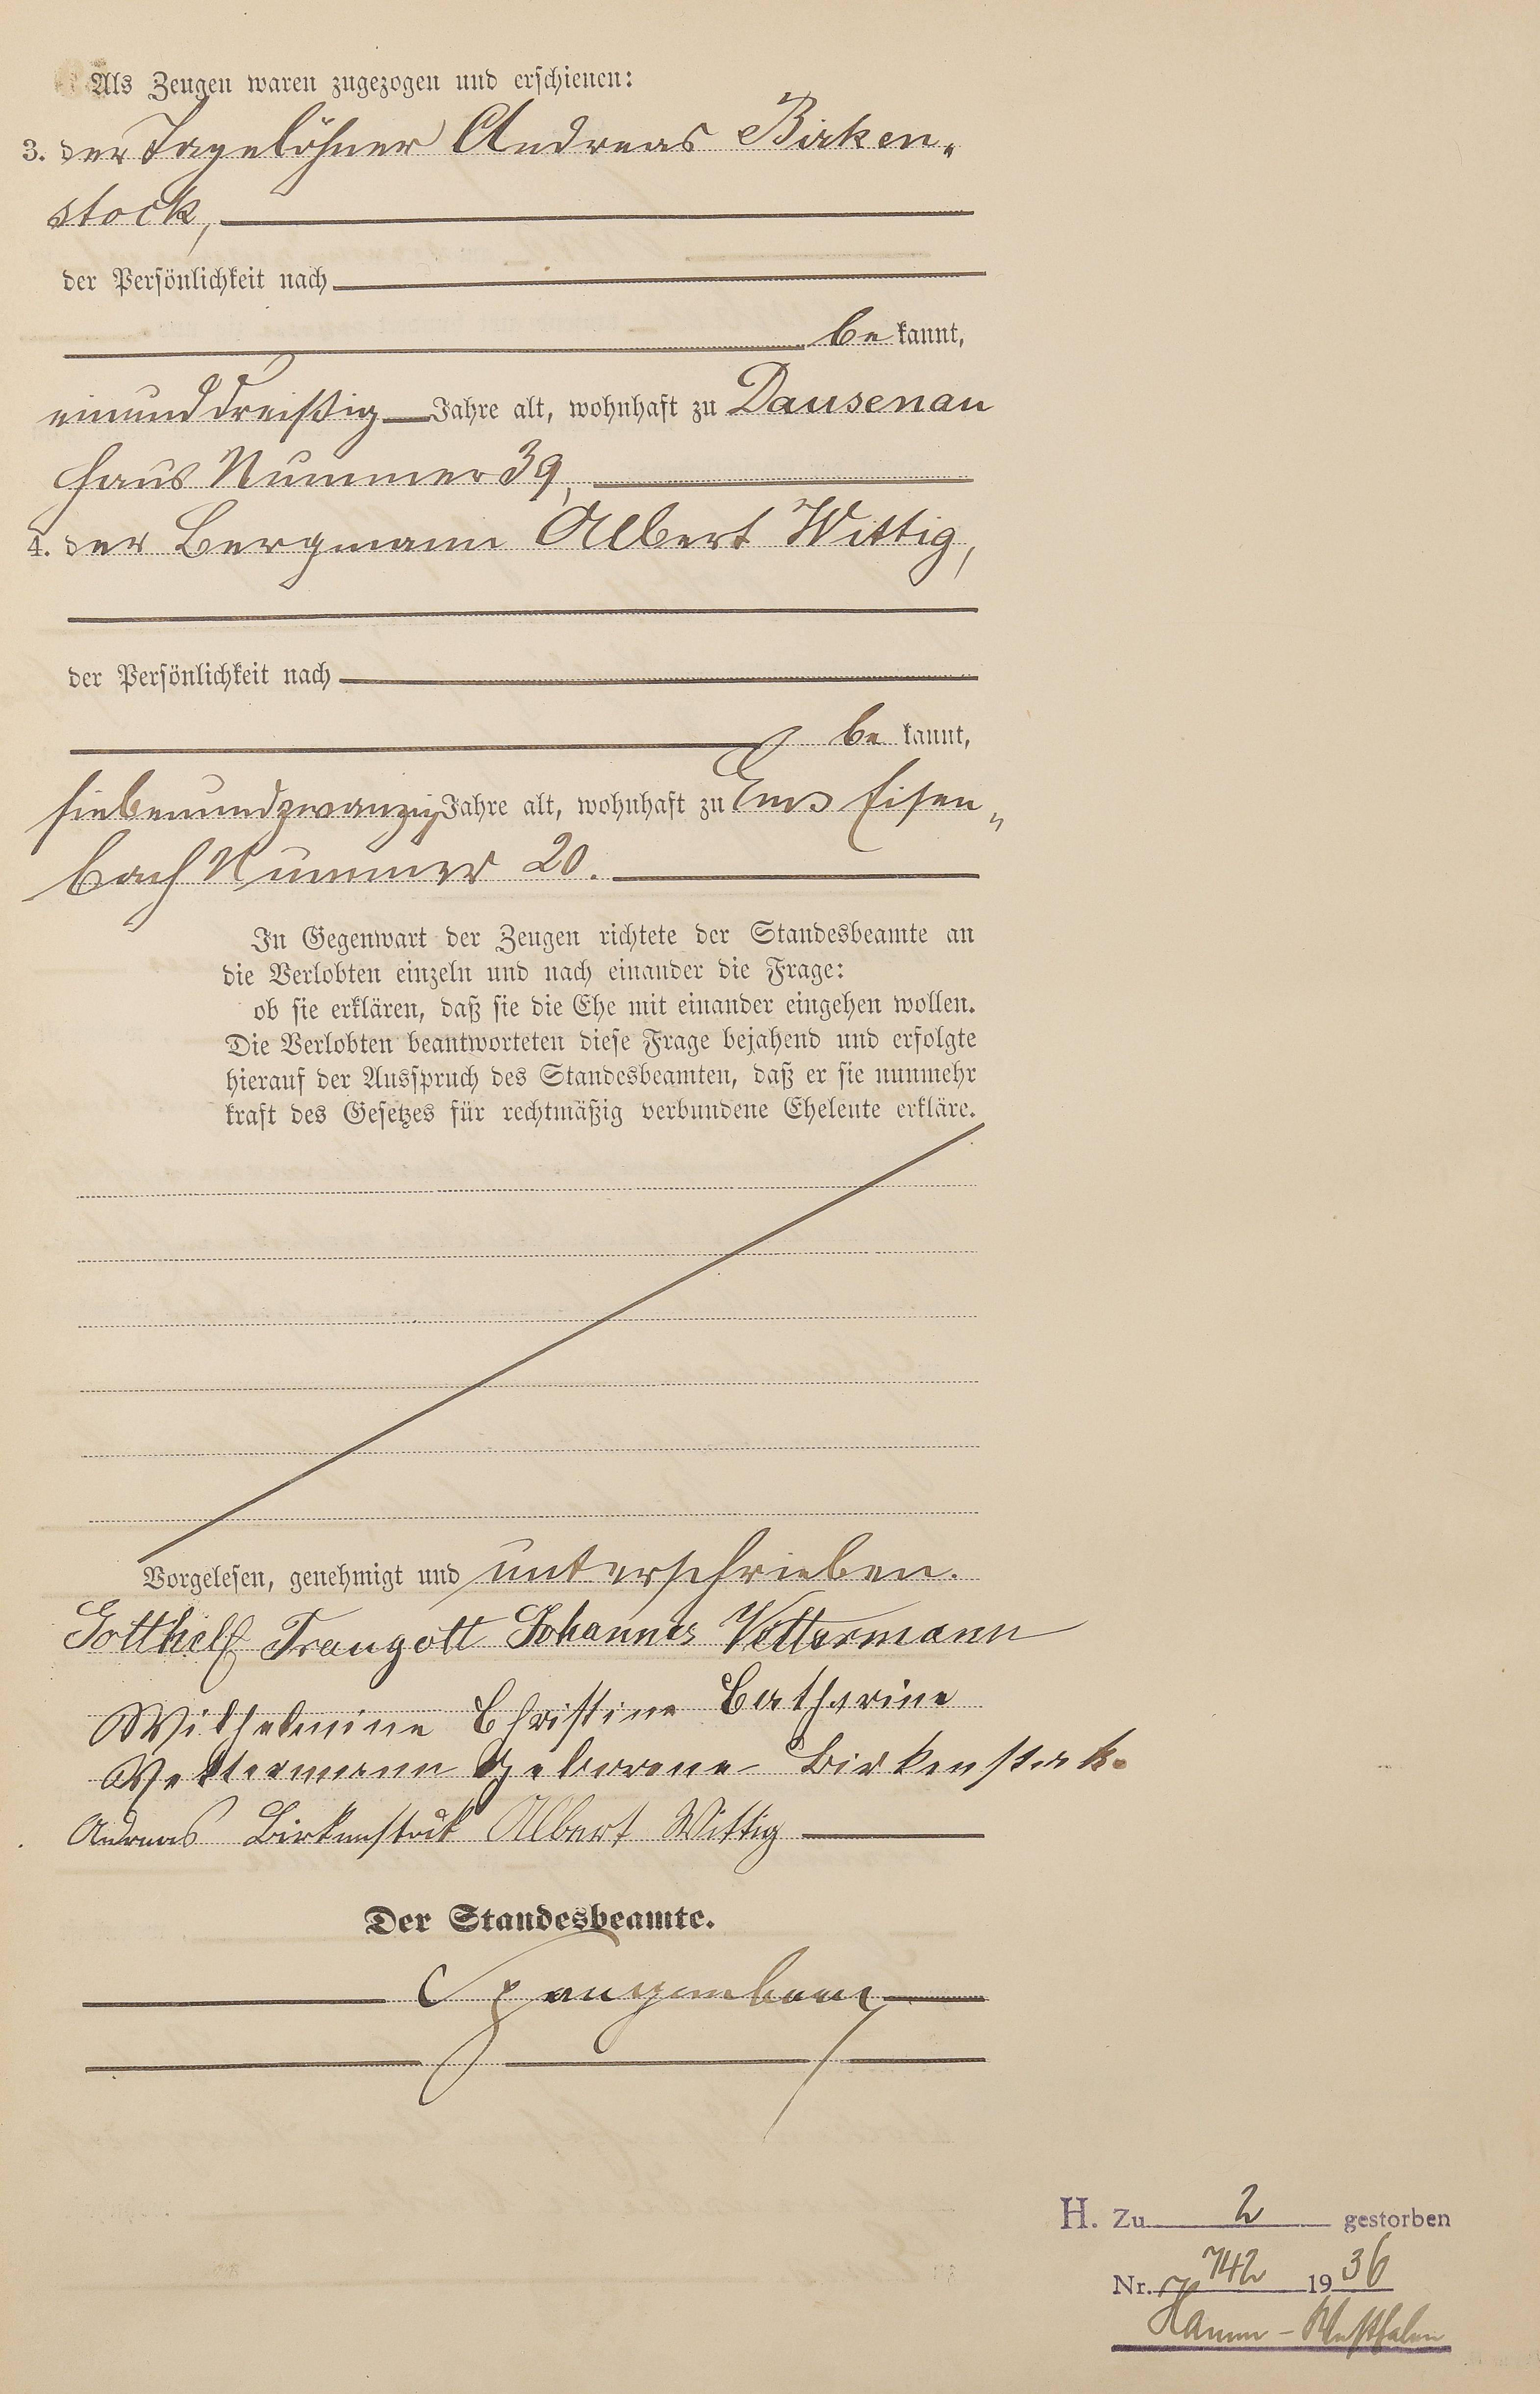 Als Zeugen waren zugezogen und erschienen:
3. der Tagelöhner Andreas Birken„
stock,
der Persönlichkeit nach
be kannt,
einunddreißig Jahre alt, wohnhaft zu Dausenau
Haus Nummer 39,
4. der Bergmann Albert Wittig,
der Persönlichkeit nach
be kannt,
siebenundzwanzig Jahre alt, wohnhaft zu Ems Eisen„
bach Nummer 20.
In Gegenwart der Zeugen richtete der Standesbeamte an
die Verlobten einzeln und nach einander die Frage:
ob sie erklären, daß sie die Ehe mit einander eingehen wollen.
Die Verlobten beantworteten diese Frage bejahend und erfolgte
hierauf der Ausspruch des Standesbeamten, daß er sie nunmehr
kraft des Gesetzes für rechtmäßig verbundene Eheleute erkläre.
Vorgelesen, genehmigt und unterschrieben.
Gotthelf Traugott Johannes Vettermann
Wilhelmine Christine Catharine
Vettermann geborene Birkenstock.
Andreas Birkenstock Albert Wittig
Der Standesbeamte.
Spangenberg
H. Zu 2 gestorben
Nr. 742 1936
Hamm - Westfalen